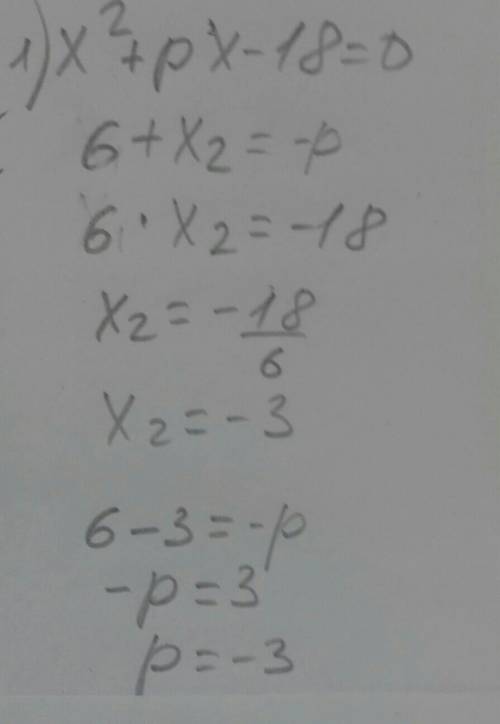 1) x² + px - 18 = 0
6 + x₂ = -p
6 · x₂ = -18
x₂ = -18/6
x₂ = -3
6 - 3 = -p
-p = 3
p = -3